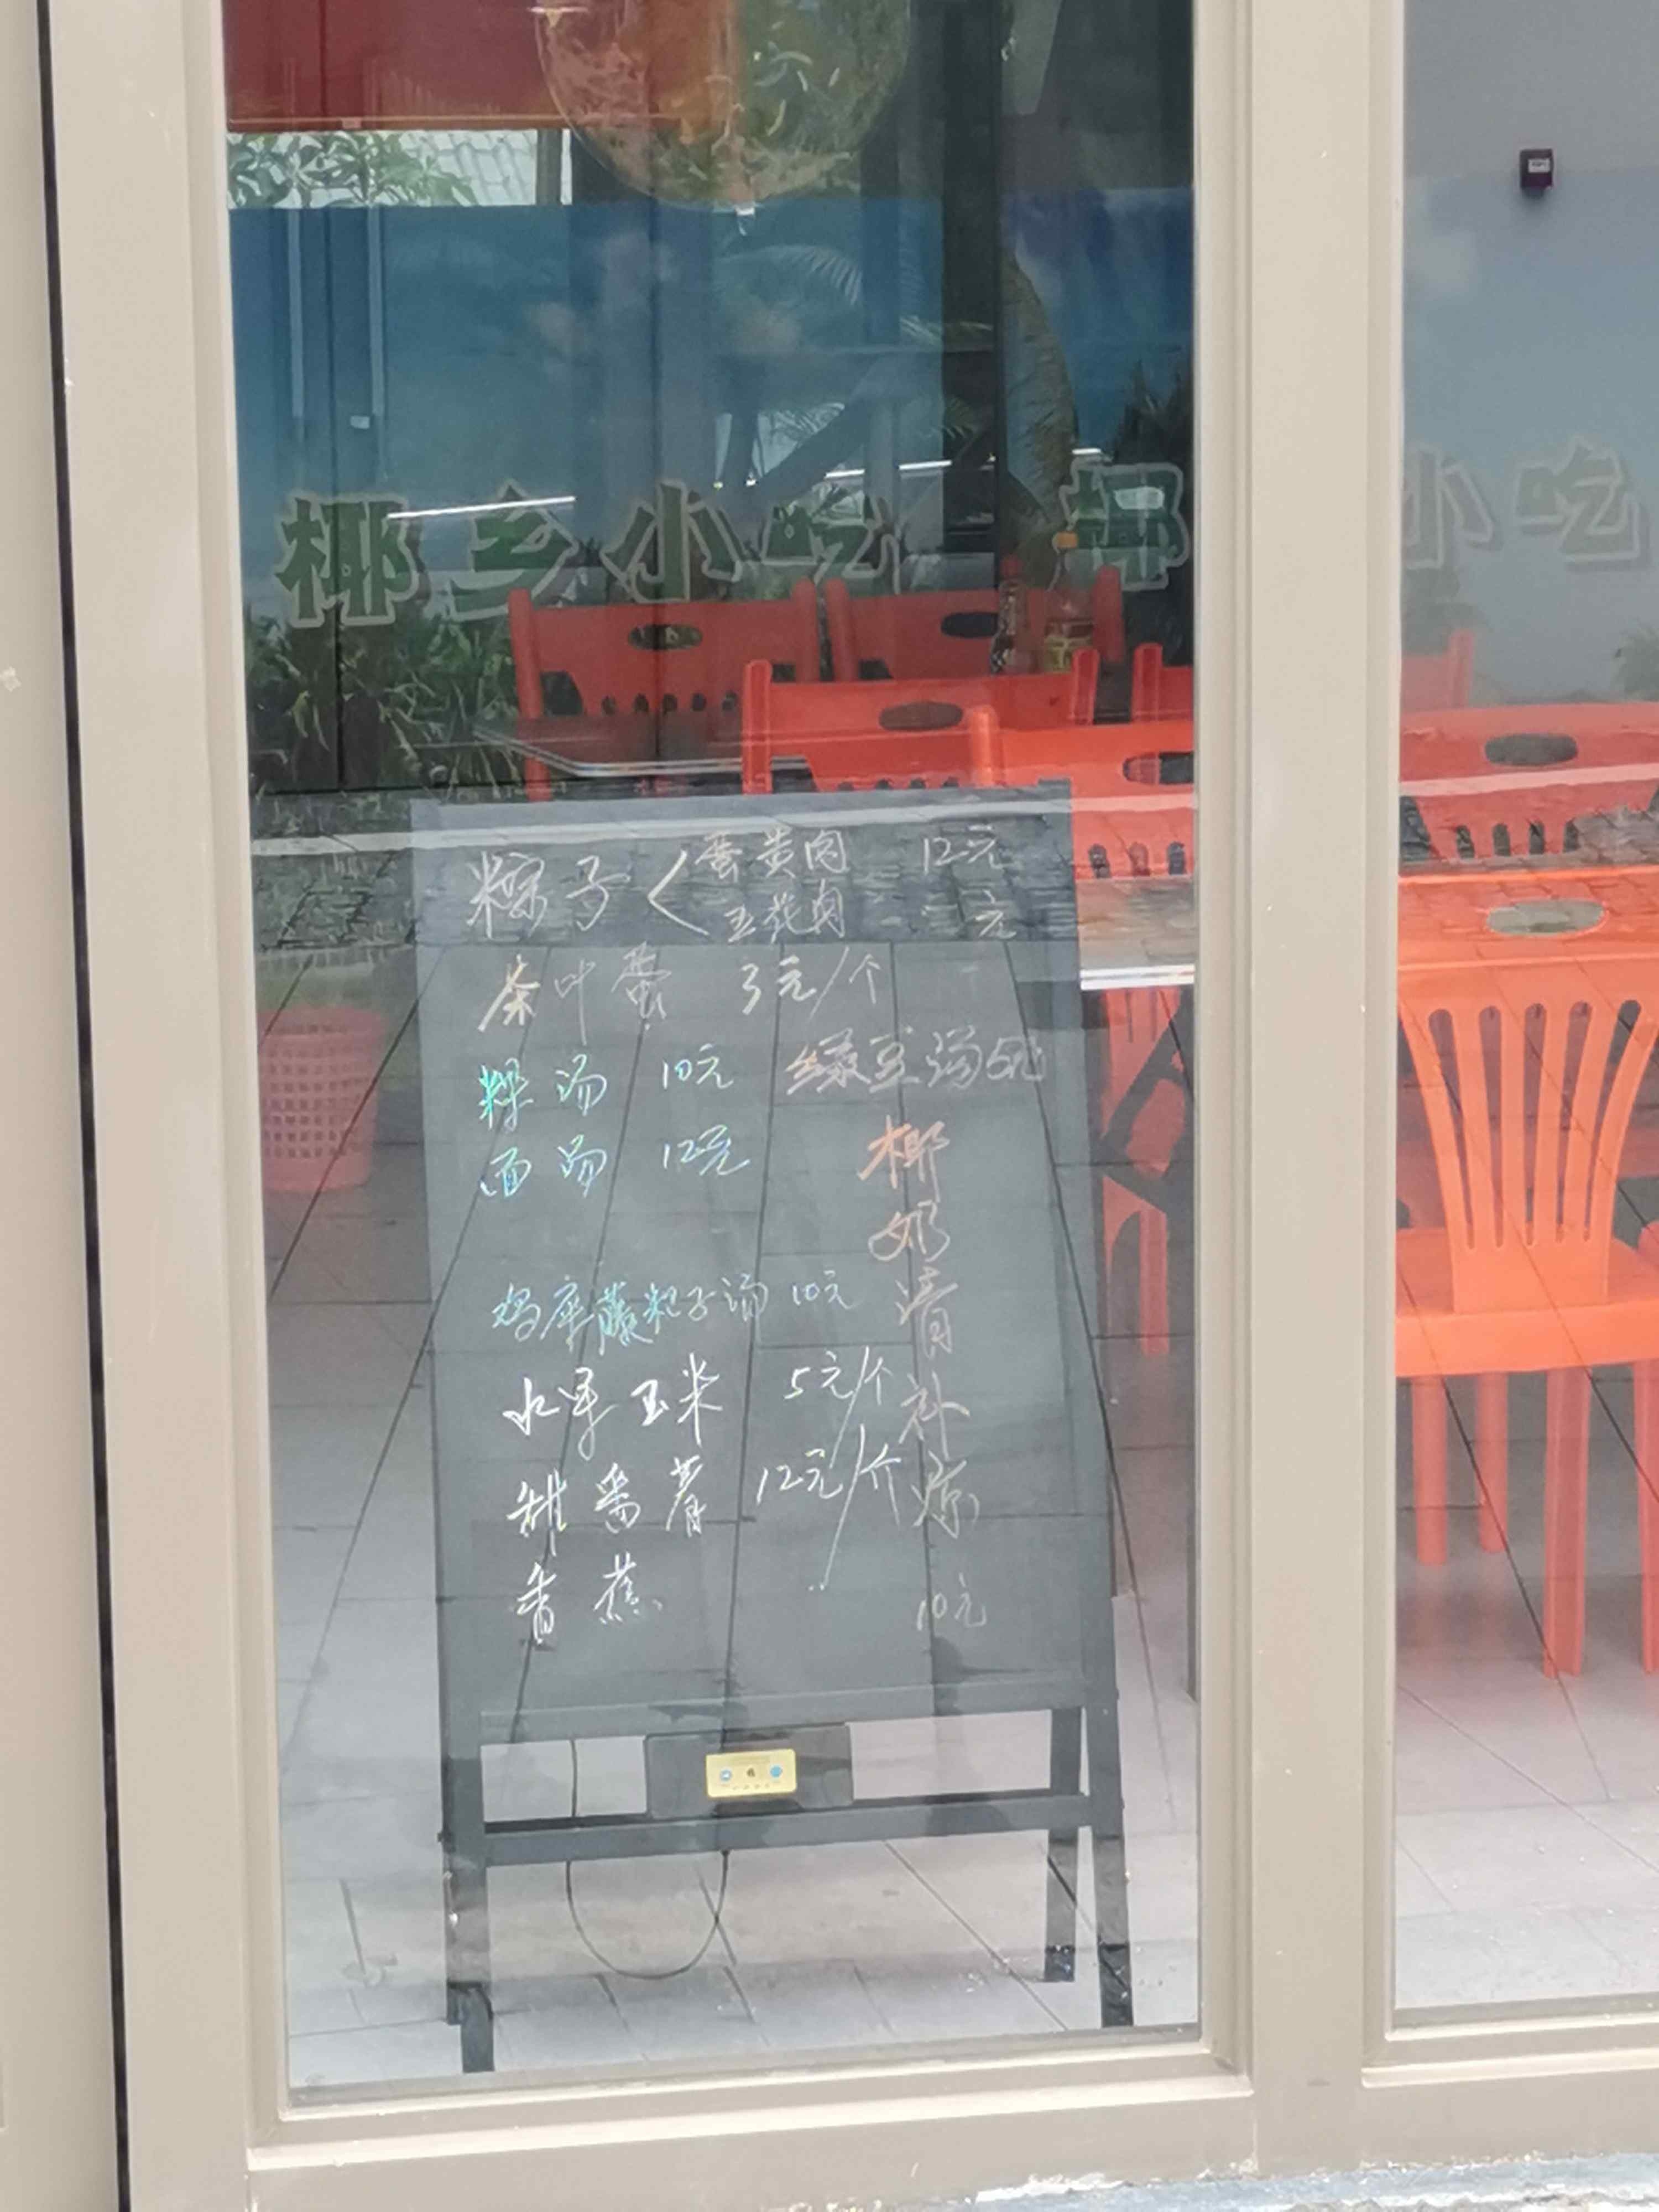 椰乡小吃 椰 小吃
粽子< 蛋黄肉 12元
五花肉 元
茶叶蛋 3元/个
粿汤 10元
绿豆汤5元
面汤 12元
鸡屎藤粑子汤 10元
水果玉米 5元/个
甜番薯 12元/个
香蕉
椰奶清补凉
10元